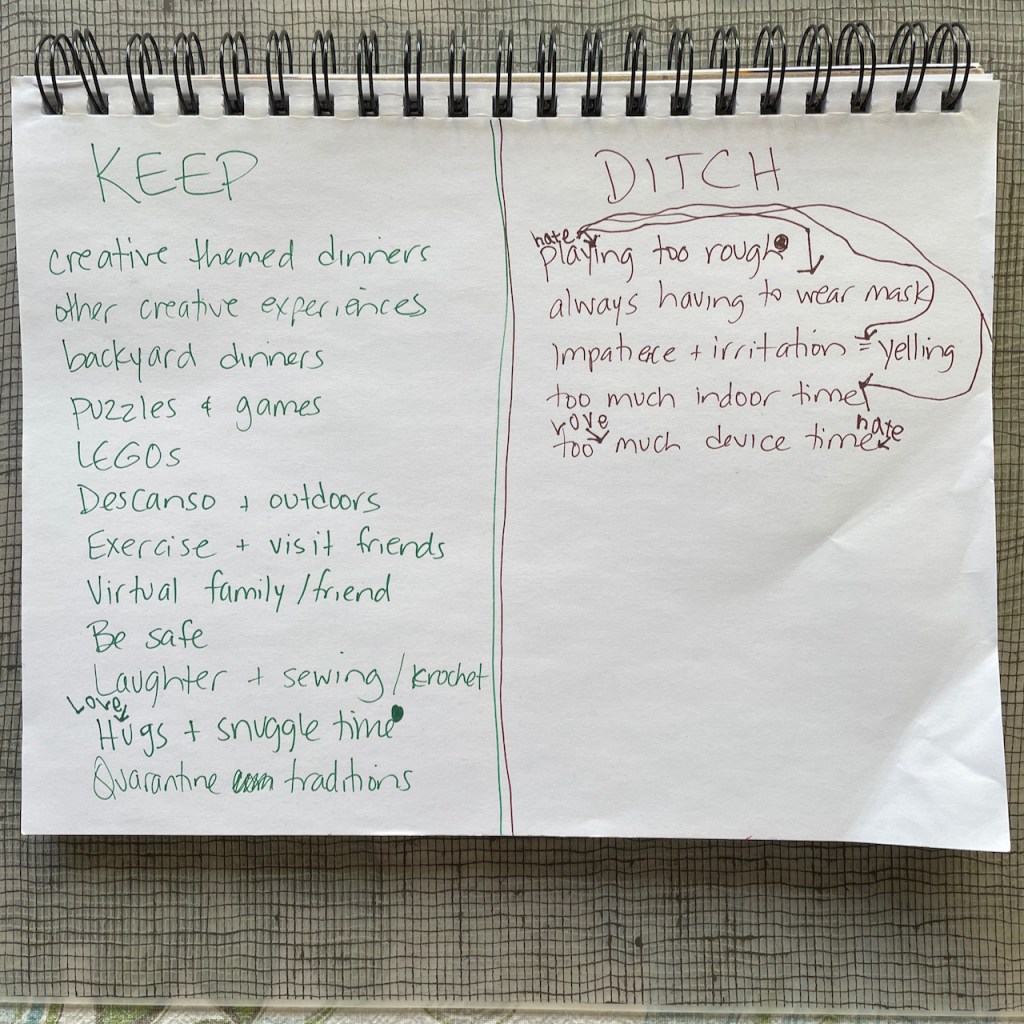 KEEP
creative themed dinners
other creative experiences
backyard dinners
puzzles & games
LEGOs
Descanso + outdoors
Exercise + visit friends
Virtual family/friend
Be safe
Laughter + sewing/krochet
Love
Hugs + snuggle time
Quarantine traditions
DITCH
hate
playing too rough
always having to wear mask
impatiece + irritation = yelling
too much indoor time
hate
too much device time